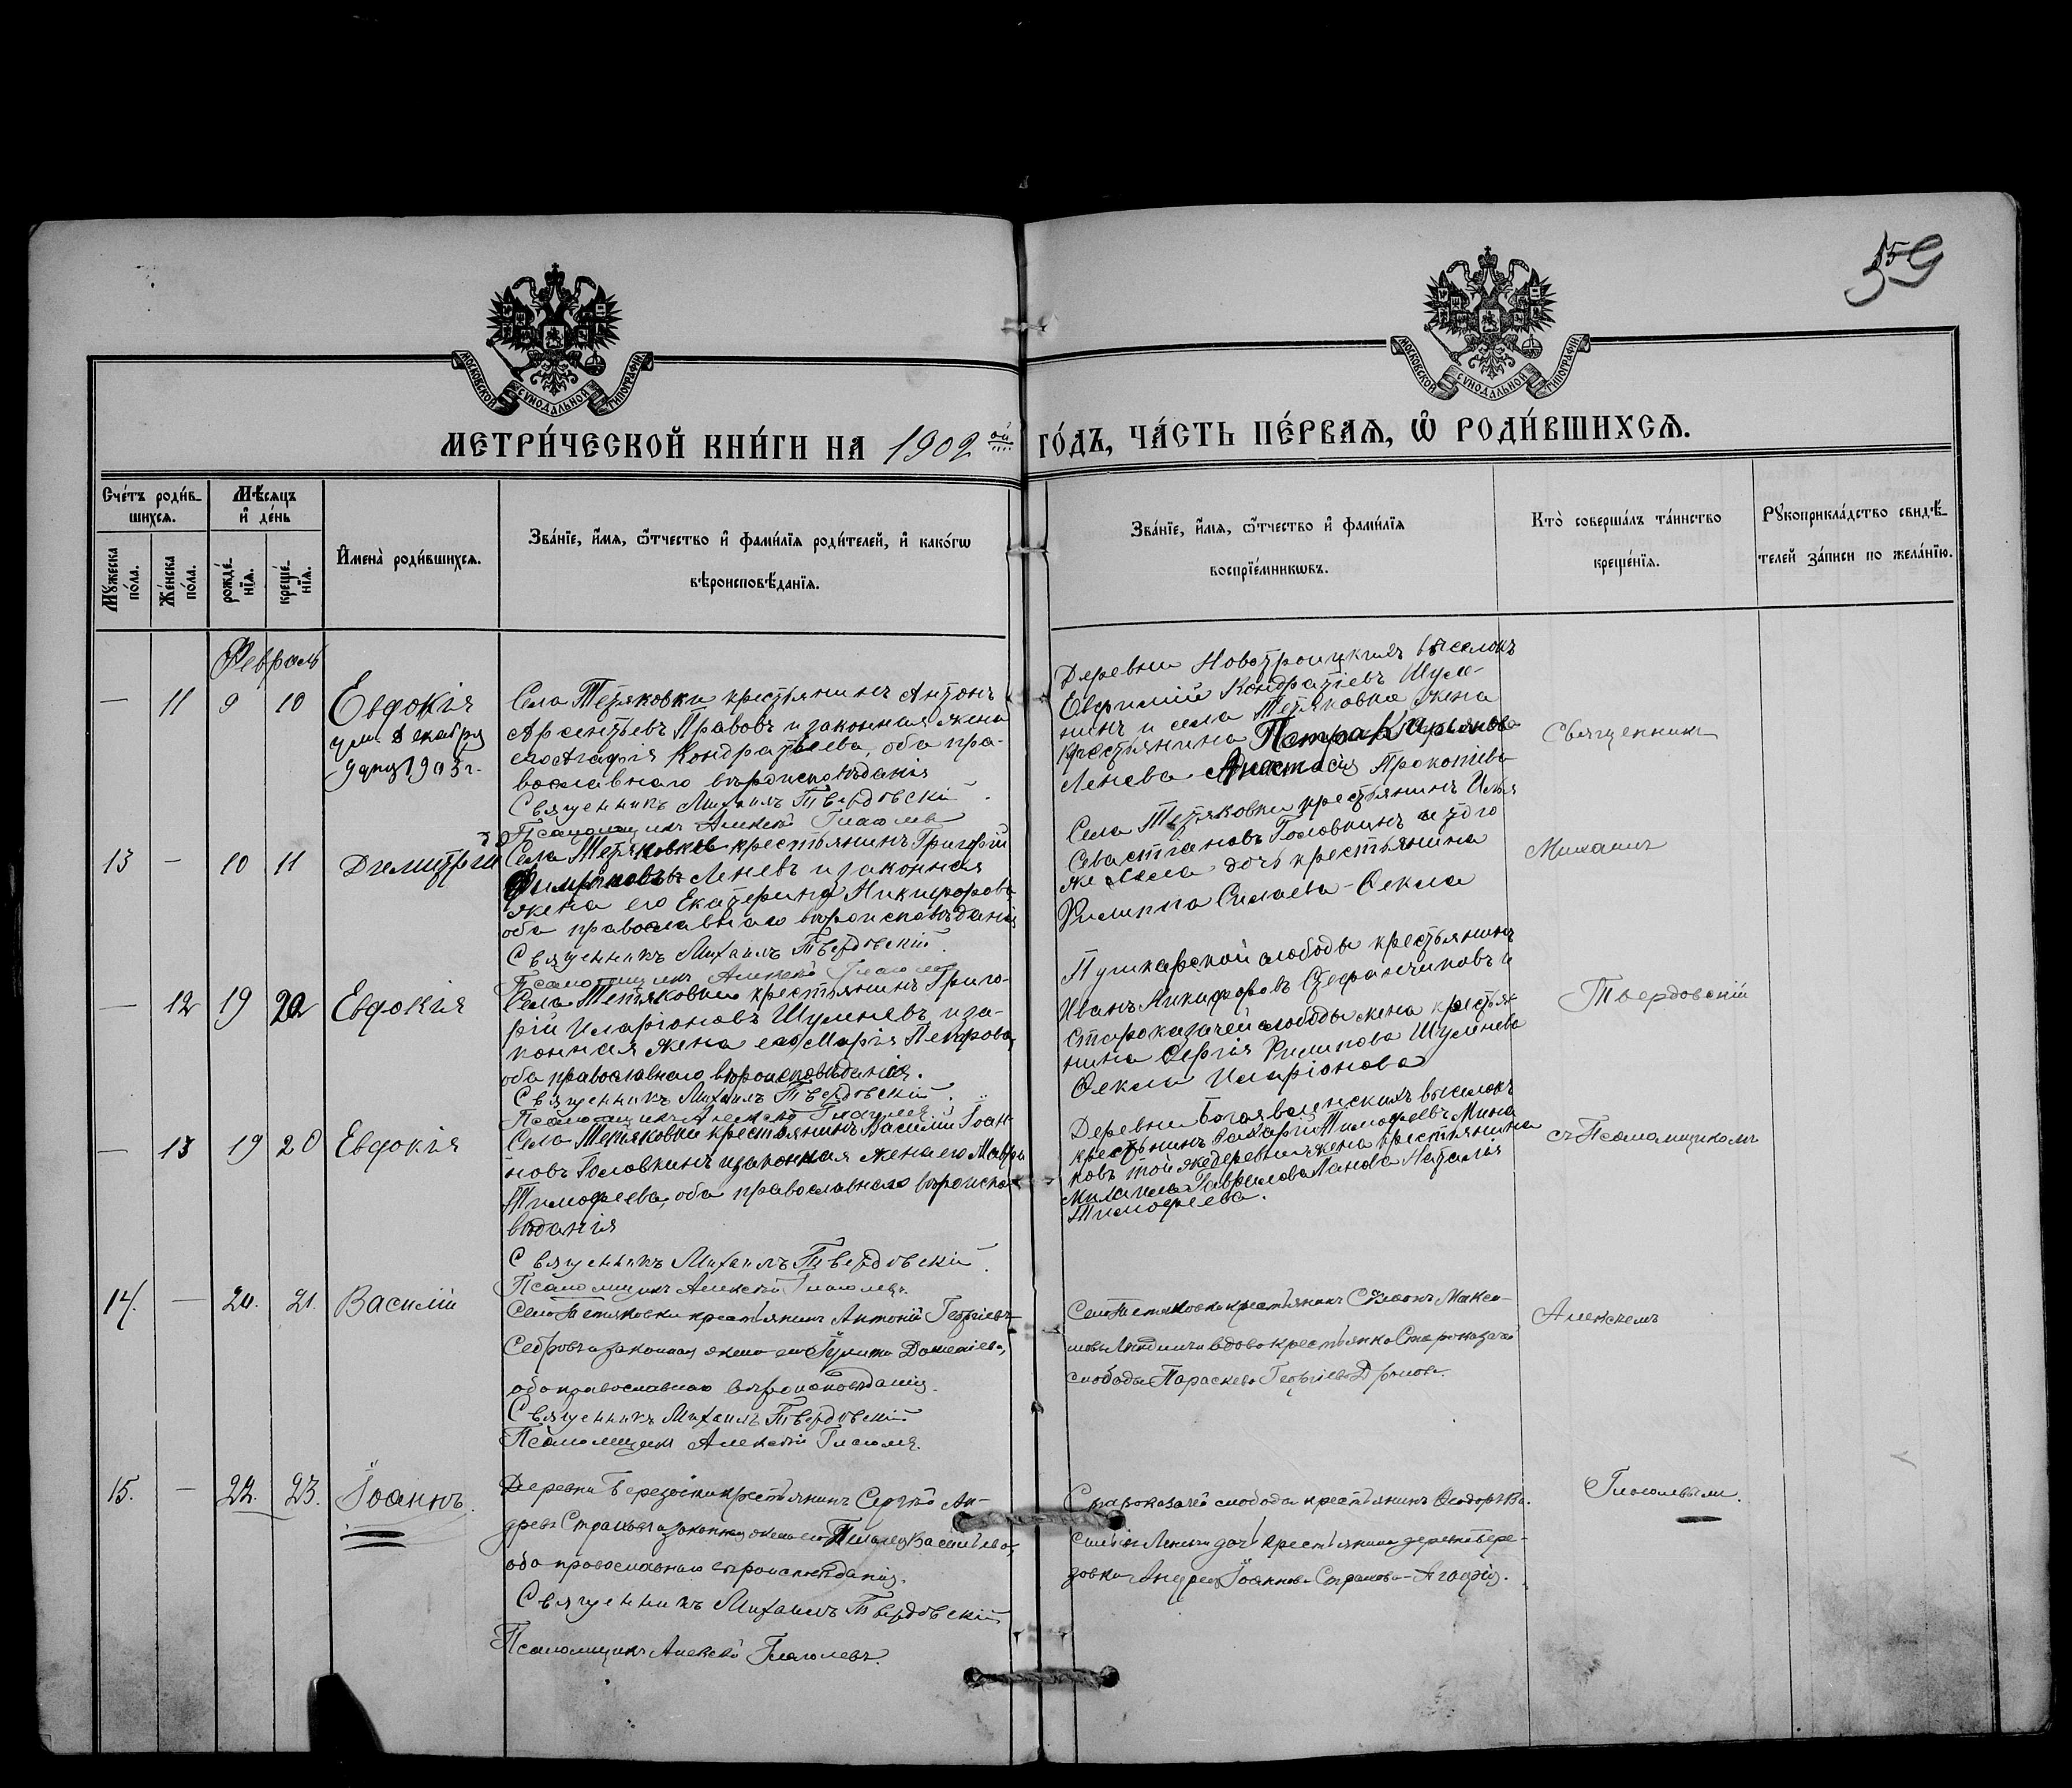 559
МОСКОВСКОЙ СѴНОДАЛЬНОЙ ТИПОГРАФІИ
МОСКОВСКОЙ СѴНОДАЛЬНОЙ ТИПОГРАФІИ
МЕТРИ́ЧЕСКОЙ КНИ́ГИ НА 1902 ой ГО́ДЪ, ЧА́СТЬ ПЕ́РВАѦ, Ѡ҆ РОДИ́ВШИХСѦ.
Сче́тъ роди́в-
шихсѧ.
Мѣ́сѧцъ
и҆ де́нь
Мꙋ́жеска
по́ла.
Же́нска
по́ла.
рожде́-
нїѧ.
креще́-
нїѧ.
И҆мена̀ роди́вшихсѧ.
Зва́нїе, и҆́мѧ, ѻ҆́тчество и҆ фами́лїѧ роди́телей, и҆ како́гѡ
вѣроисповѣ́данїѧ.
Зва́нїе, и҆́мѧ, ѻ҆́тчество и҆ фами́лїѧ
воспрїе́мникѡвъ.
Кто̀ соверша́лъ та́инство
креще́нїѧ.
Рꙋкоприкла́дство свидѣ́-
телей за́писи по жела́нїю.
Февраль
— 11 9 10
Евдокія
ум. декабря
9 дня 1903 г.
Села Тетяковки крестьянинъ Антонъ
Арсентьевъ Правовъ и законная жена
его Агафія Кондратьева, оба пра-
вославнаго вѣроисповѣданія
Священникъ Михаилъ Твердовскій.
Псаломщикъ Алексѣй Глаголевъ
Деревни Новотроицкихъ выселокъ
Евфимій Кондратіевъ Шуле-
нинъ и села Тетяковки жена
крестьянина Петра Карпова
Ленева Анастасія Прокопіева
Священникъ
13 — 10 11
Димитрій
Села Тетяковки крестьянинъ Григорій
Филиповъ Леневъ и законная
жена его Екатерина Никифорова,
оба православнаго вѣроисповѣданія
Священникъ Михаилъ Твердовскій.
Псаломщикъ Алексѣй Глаголевъ
Села Тетяковки крестьянинъ Илья
Севастіановъ Головкинъ и того
же села дочь крестьянина
Филиппа Силаева - Ѳекла
Михаилъ
— 12 19 20
Евдокія
Села Тетяковки крестьянинъ Григо-
рій Иларіоновъ Шуленевъ и за-
конная жена его Марія Петрова,
оба православнаго вѣроисповѣданія.
Священникъ Михаилъ Твердовскій.
Псаломщикъ Алексѣй Глаголевъ
Пушкарской слободы крестьянинъ
Иванъ Никифоровъ Стефанчиковъ и
Староказачей слободы жена крестья-
нина Сергія Филипова Шуленева
Ѳекла Иларіонова
Твердовскій
— 13 19 20
Евдокія
Села Тетяковки крестьянинъ Василій Іоан-
новъ Головкинъ и законная жена его Мавра
Тимофеева, оба православнаго вѣроиспо-
вѣданія
Священникъ Михаилъ Твердовскій.
Псаломщикъ Алексѣй Глаголевъ.
Деревни Богоявленскихъ выселокъ
крестьянинъ Захарій Тимофеевъ Мина-
ковъ той же деревни жена крестьянина
Михаила Гаврилова Панова Наталія
Тимофеева.
съ Псаломщикомъ
14. — 20. 21.
Василій
Села Тетяковки крестьянинъ Антоній Георгіевъ
и законная жена его Іулита
оба православнаго вѣроисповѣданія.
Священникъ Михаилъ Твердовскій.
Псаломщикъ Алексѣй Глаголевъ.
Села Тетяковки крестьянинъ Макси-
мовъ и вдова крестьянка Староказачей
слободы Параскева Георгіева
Алексѣемъ
15. — 22. 23.
Іоаннъ.
Деревни Березовки крестьянинъ Сергѣй Ан-
древъ Страховъ и законная жена его Пелагея Васильева,
оба православнаго вѣроисповѣданія.
Священникъ Михаилъ Твердовскій
Псаломщикъ Алексѣй Глаголевъ.
Староказачей слободы крестьянинъ Ѳеодоръ Ва-
сильевъ дочь крестьянина деревни Бере-
зовки Андрея Іоаннова Страхова - Агафія.
Глаголевымъ.